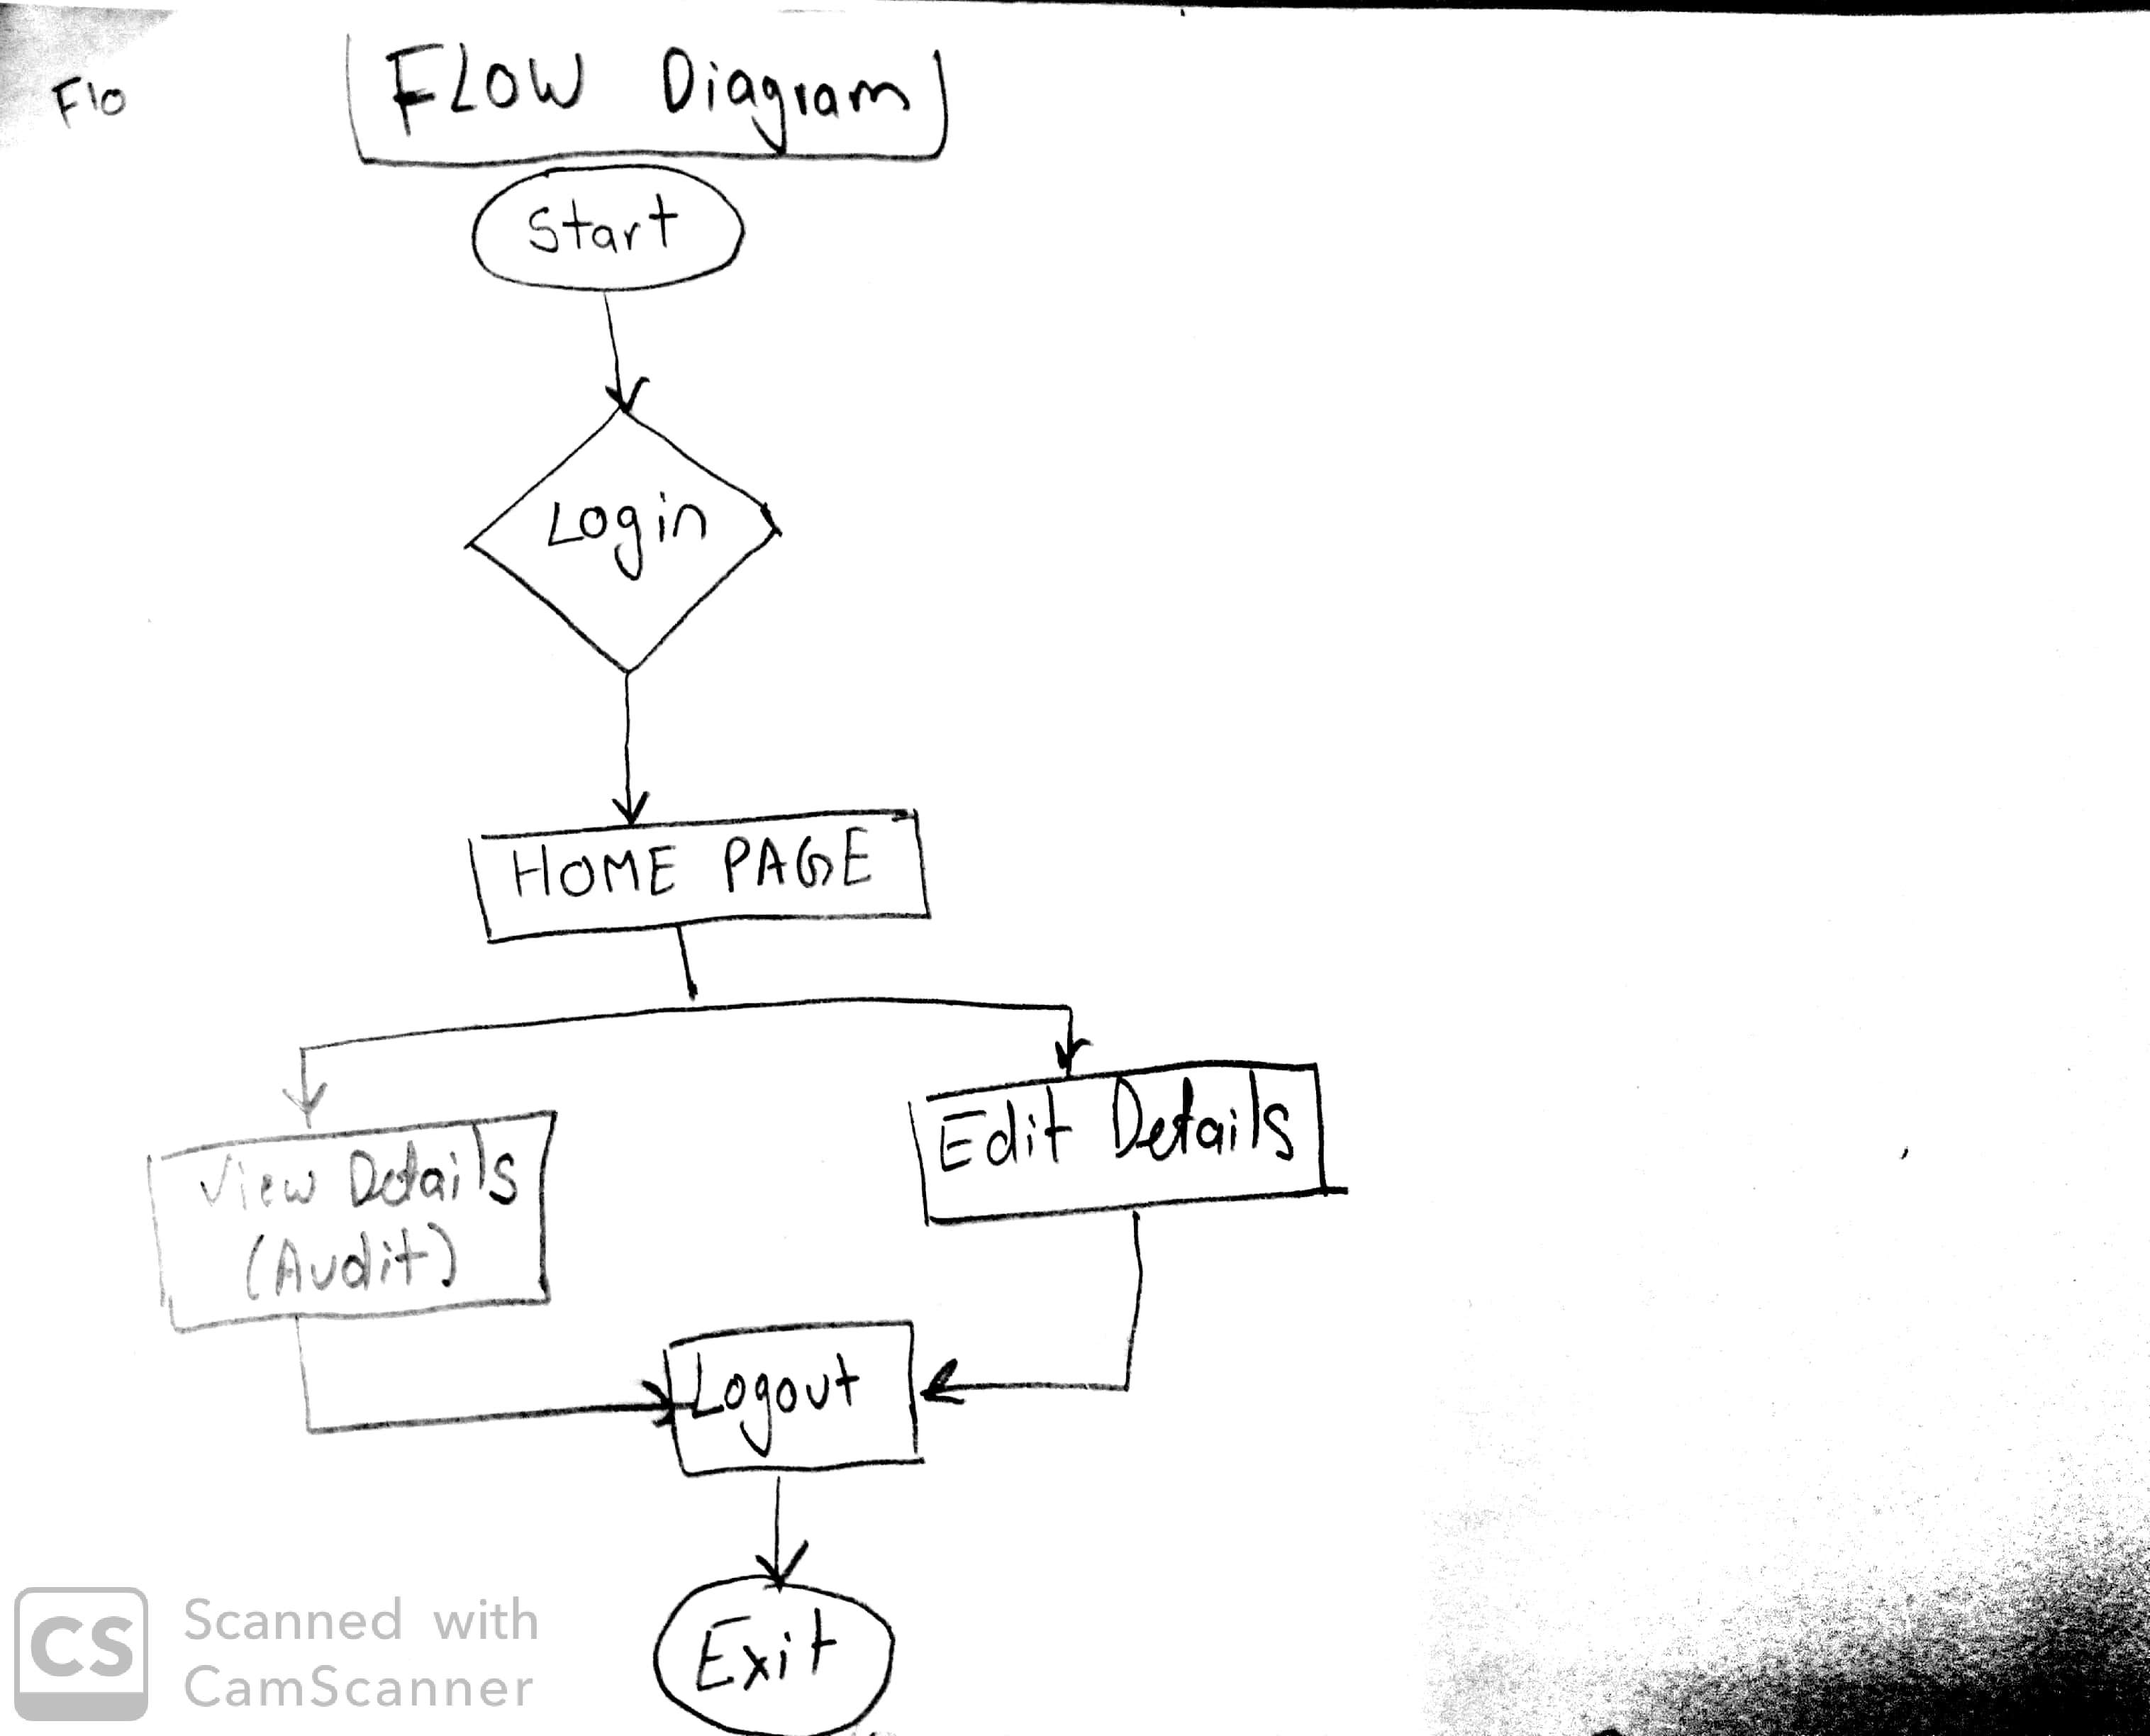 Flo
FLOW Diagram
Start
Login
HOME PAGE
Edit Details
View Details
(Audit)
Logout
Exit
CS
Scanned with
CamScanner